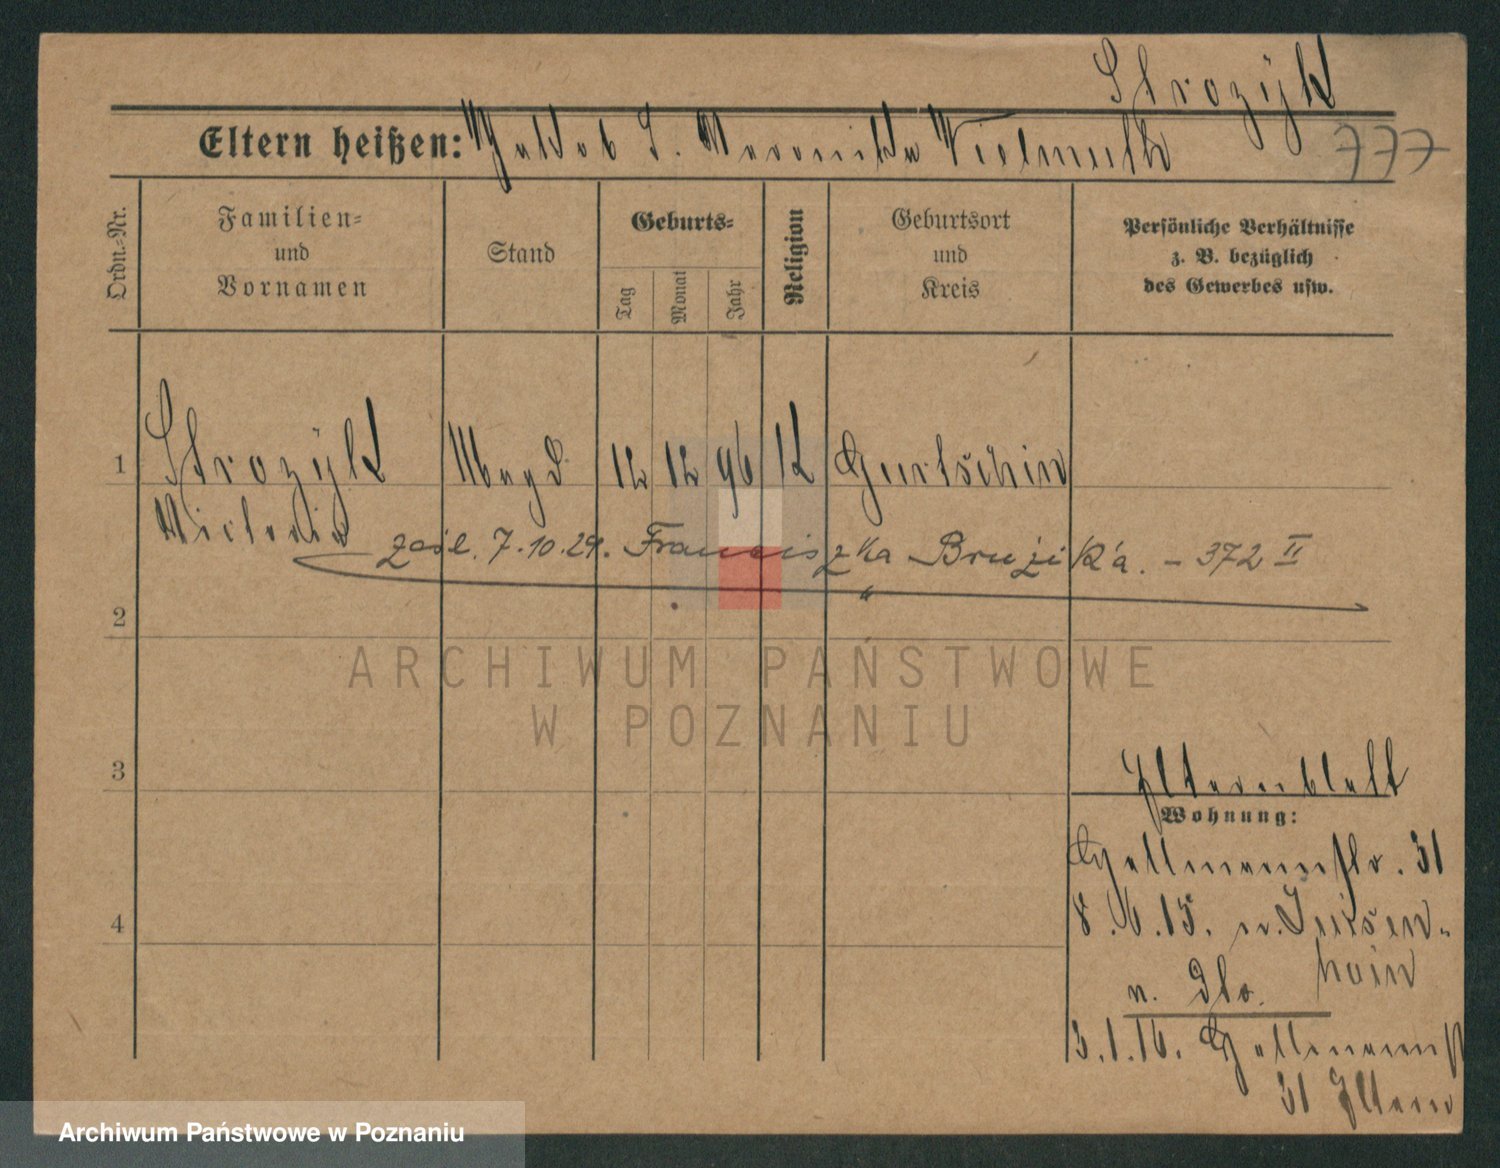 Strozÿk
Eltern heißen: Jakob S. Veronika Wielmuth
777
Ordn.-Nr.
Familien-
und
Vornamen
Stand
Geburts-
Tag
Monat
Jahr
Religion
Geburtsort
und
Kreis
Persönliche Verhältnisse
z. B. bezüglich
des Gewerbes usw.
1
Strozÿk Magd 12 12 96 K Gurtschin
Victoria
zaśl. 7.10.29. Franciszka Brużika. - 372 II
2
ARCHIWUM PAŃSTWOWE
W POZNANIU
3
Elternblatt
Wohnung:
31
4
8.6.15. n.
hain
n. Dto.
3.1.16.
31 Eltern
Archiwum Państwowe w Poznaniu